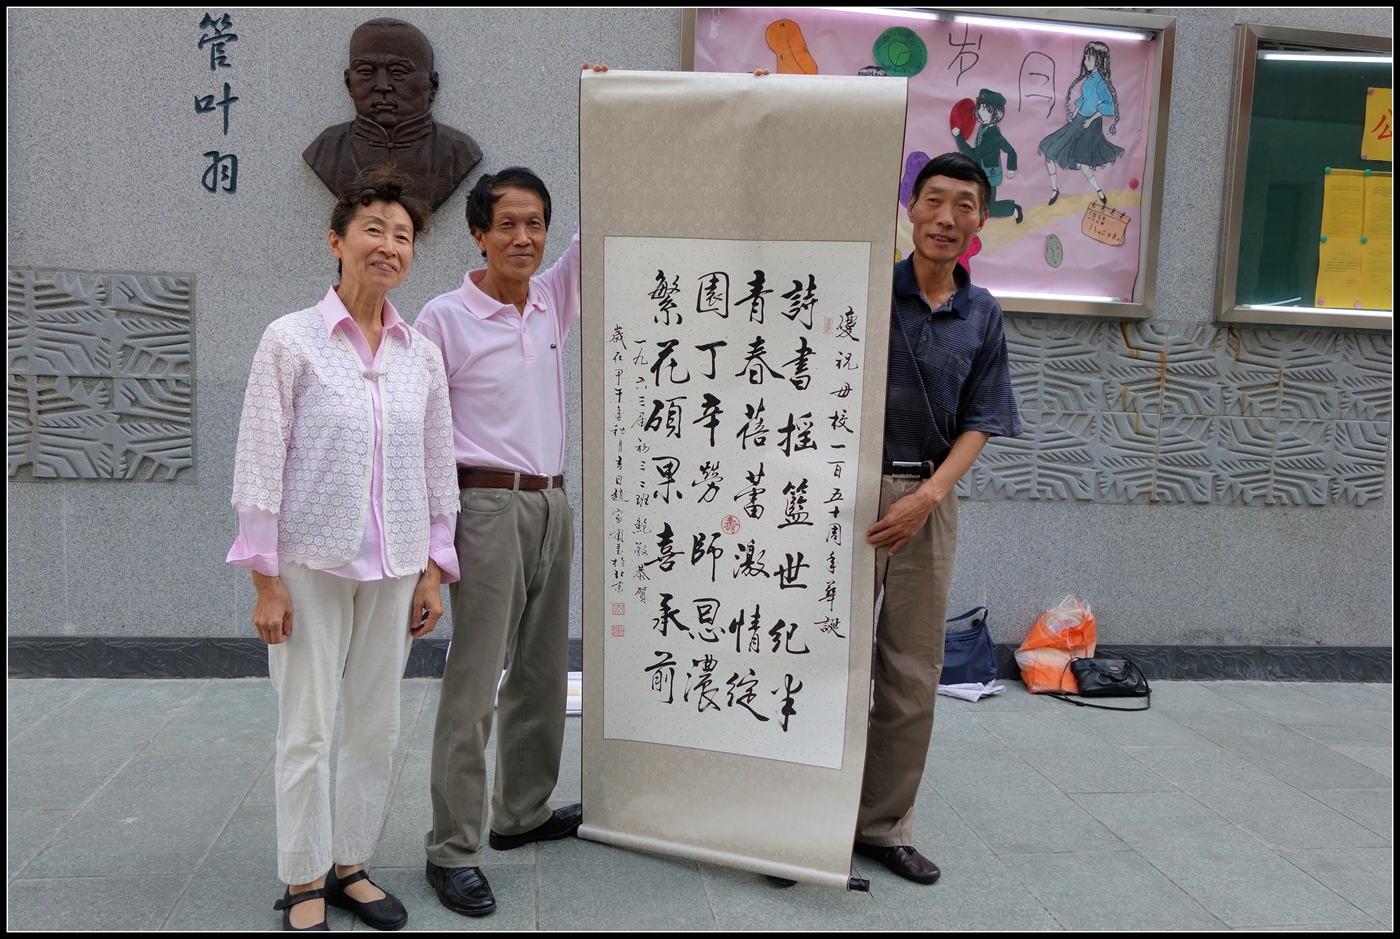 管叶羽
岁月
慶祝母校一百五十周年華誕
詩書摇籃世紀半
青春蓓蕾激情綻
園丁辛勞師恩濃
繁花碩果喜承前
一九六三届初三二班鮑敬恭賀
歲在甲午年秋月吉日趙家
書於北京